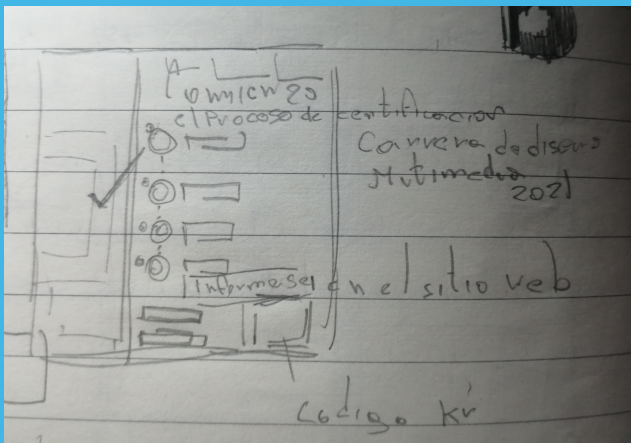 Comienzo
el Proceso de certificacion
Carrera de diseño
Mutimedia
2021
Informese en el sitio web
Codigo Kr